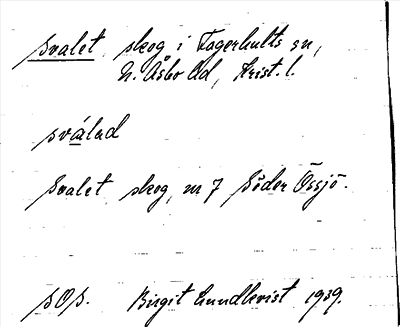 Svalet, skog i Fagerhults sn,
N. Åsbo hd, Krist. l.
sválad
Svalet, skog, nr 7 Söder Össjö.
SOS. Birgit Lundkvist 1939.